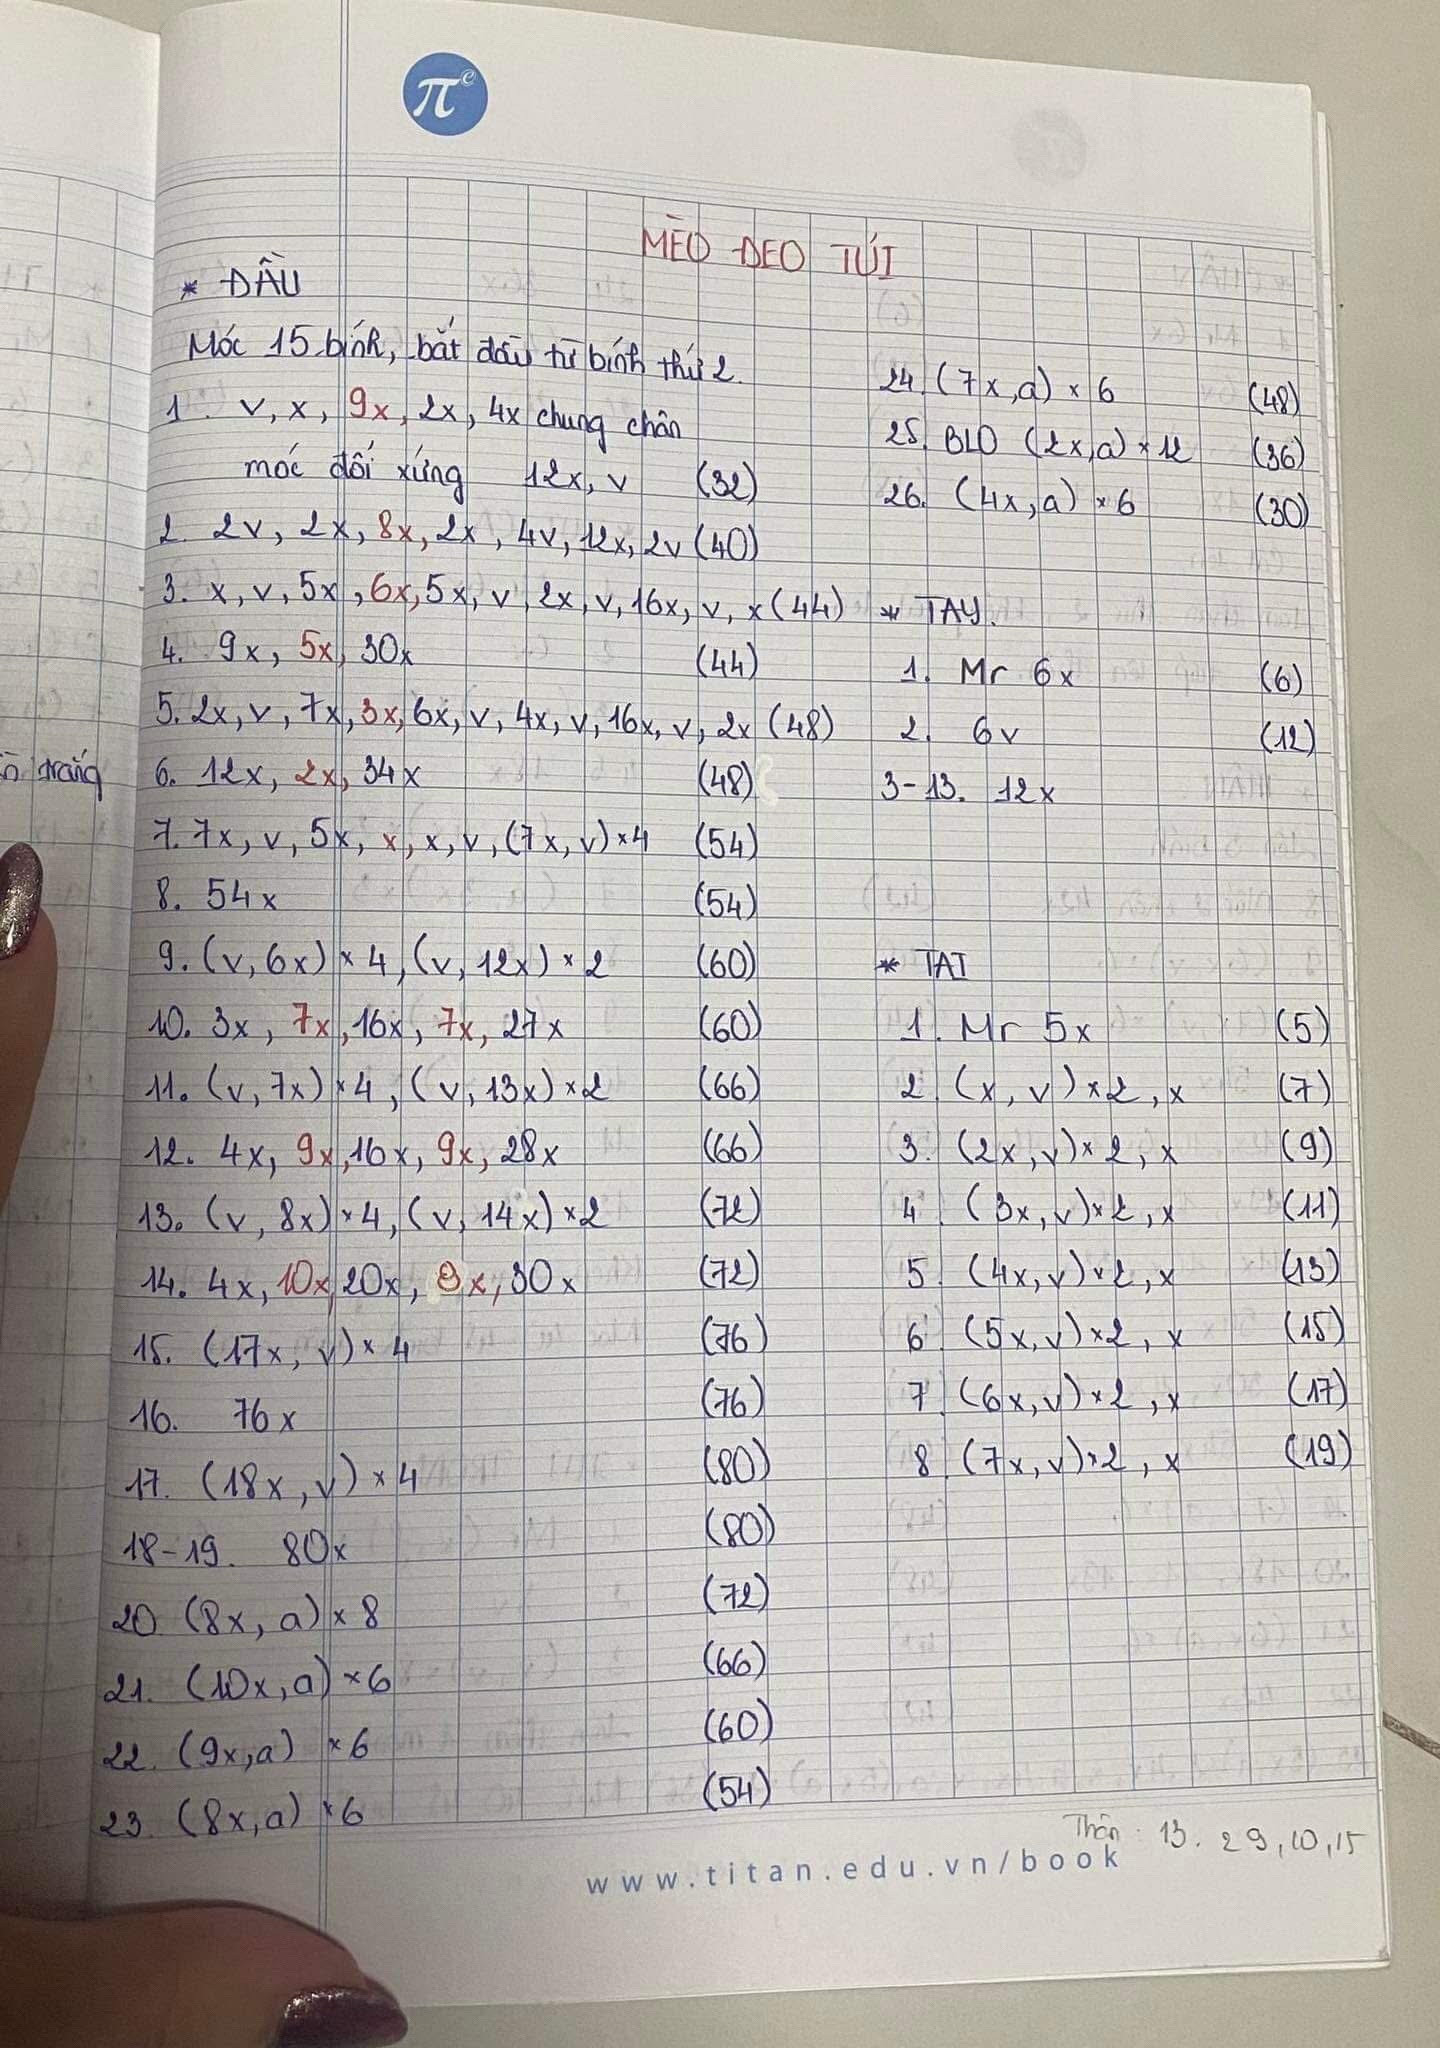 π e
MÈO ĐEO TÚI
* ĐẦU
Móc 15 bính, bắt đầu từ bính thứ 2.
1. v, x, 9x, 2x, 4x chung chân
móc đối xứng 12x, v (32)
2. 2v, 2x, 8x, 2x, 4v, 12x, 2v (40)
3. x, v, 5x, 6x, 5x, v, 2x, v, 16x, v, x (44)
4. 9x, 5x, 30x (44)
5. 2x, v, 7x, 3x, 6x, v, 4x, v, 16x, v, 2x (48)
6. 12x, 2x, 34x (48)
7. 7x, v, 5x, x, x, v, (7x, v) × 4 (54)
8. 54x (54)
9. (v, 6x) × 4, (v, 12x) × 2 (60)
10. 3x, 7x, 16x, 7x, 27x (60)
11. (v, 7x) × 4, (v, 13x) × 2 (66)
12. 4x, 9x, 16x, 9x, 28x (66)
13. (v, 8x) × 4, (v, 14x) × 2 (72)
14. 4x, 10x, 20x, 8x, 30x (72)
15. (17x, v) × 4 (76)
16. 76x (76)
17. (18x, v) × 4 (80)
18-19. 80x (80)
20 (8x, a) × 8 (72)
21. (10x, a) × 6 (66)
22. (9x, a) × 6 (60)
23. (8x, a) × 6 (54)
24. (7x, a) × 6 (48)
25. BLO (2x, a) × 12 (36)
26. (4x, a) × 6 (30)
* TAY.
1. Mr 6x (6)
2. 6v (12)
3-13. 12x
* TAI
1. Mr 5x (5)
2. (x, v) × 2, x (7)
3. (2x, v) × 2, x (9)
4 (3x, v) × 2, x (11)
5 (4x, v) × 2, x (13)
6 (5x, v) × 2, x (15)
7 (6x, v) × 2, x (17)
8 (7x, v) × 2, x (19)
Thân: 13. 29, 10, 15
www.titan.edu.vn/book
trắng